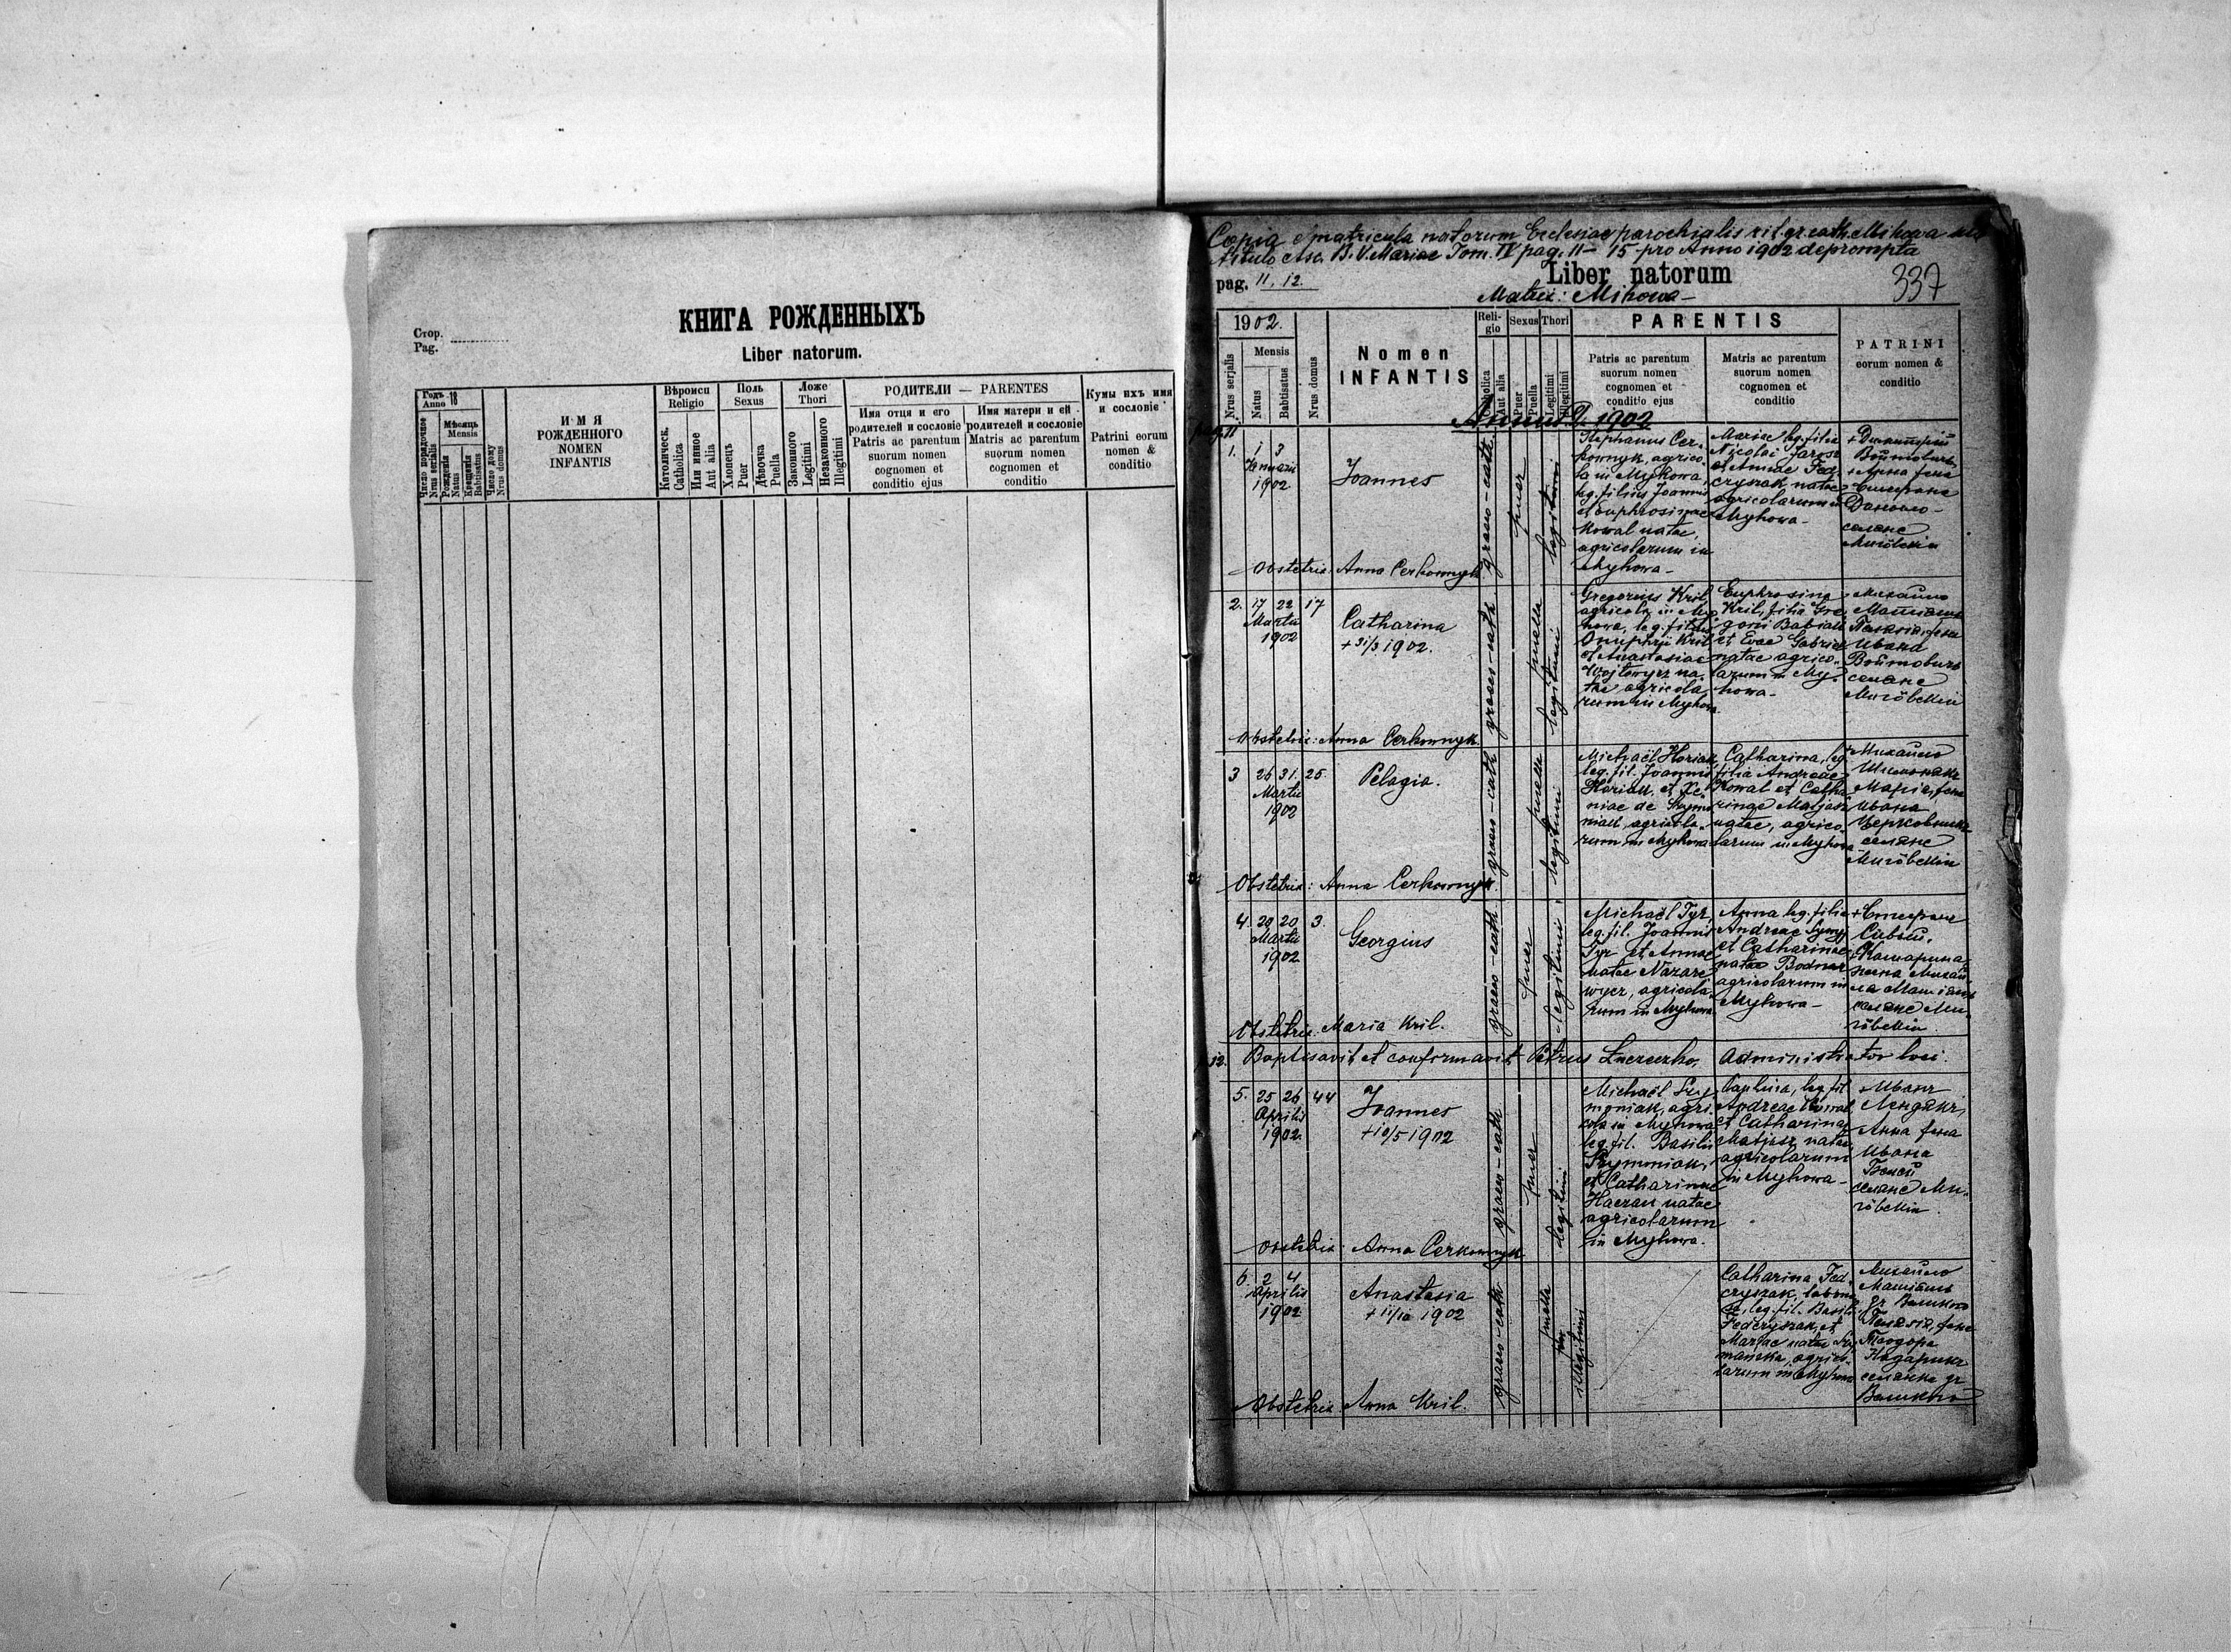 КНИГА РОЖДЕННЫХЪ
Стор.
Pag.
Liber natorum.
Годъ 18
Anno
Мѣсяць
Mensis
Число порядочное
Nrus serialis
Рожденія
Natus
Крещенія
Babtisatus
Число дому
Nrus domus
И М Я
РОЖДЕННОГО
NOMEN
INFANTIS
Вѣроиси
Religio
Католическ.
Catholica
Или инное
Aut alia
Полъ
Sexus
Хлопецъ
Puer
Дѣвочка
Puella
Ложе
Thori
Законного
Legitimi
Незаконного
Illegitimi
РОДИТЕЛИ — PARENTES
Имя отця и его
родителей и сословіе
Patris ac parentum
suorum nomen
cognomen et
conditio ejus
Имя матери и ей
родителей и сословіе
Matris ac parentum
suorum nomen
cognomen et
conditio
Кумы ихъ имя
и сословіе
Patrini eorum
nomen &
conditio
Copia e matricula natorum Ecclesiae parochialis rit. gr. cath. Mihowa
titulo Asc. B. V. Mariae Tom. IV pag. 11 – 15 pro Anno 1902 deprompta
pag. 11. 12.
Liber natorum
337
Matrix: Mihowa –
1902.
Nrus serjalis
Mensis
Natus
Babtisatus
Nrus domus
Nomen
INFANTIS
Religio
Catholica
Aut alia
Sexus
Puer
Puella
Thori
Legitimi
Illegitimi
PARENTIS
Patris ac parentum
suorum nomen
cognomen et
conditio ejus
Matris ac parentum
suorum nomen
cognomen et
conditio
PATRINI
eorum nomen &
conditio
Annus D. 1902
pag. 11
1. 1 3
Januarii
1902
Joannes
graeco-cath.
puer
legitimi
Stephanus Cer-
kownyk, agrico-
la in Myhowa,
leg. filius Joannis
et Euphrosinae
Kowal natae,
agricolarum in
Myhowa –
Mariae leg. filia
Nicolai Jarosz
et Annae Fed-
cryszak natae
agricolarum in
Myhowa –
+ Димитрій
Войтовичъ
+ Анна жена
Стефана
селяне
Obstetrix: Anna Cerkownyk
2. 17 22 17
Martii
1902
Catharina
+ 31/3 1902.
graeco-cath
puella
legitimi
Gregorius Kril
agricola in My-
howa, leg. filius
Onuphrij Kril
et Anastasiae
Wojtowycz na-
tae agricola
rum in Myhowa
Euphrosina
Kril, filia Gre-
gorii Babiak
et Evae Gabriel
natae agrico-
larum in My-
howa –
Михайло
жена
Ивана
Войтовичъ
селяне
Obstetrix: Anna Cerkownyk.
3 26 31. 25.
Martii
1902
Pelagia.
graeco-cath
puella
legitimi
Michaël Horiak,
leg. fil. Joannis
Horiak, et Xe-
niae de Szymo
niak, agricola-
rum in Myhowa
Catharina, leg.
filia Andreae
Kowal et Catha
rinae Matjasz
natae, agrico-
larum in Myhowa
+ Михайло
Марія, жена
Ивана
Церковника
селяне
Obstetrix: Anna Cerkownyk.
4. 20 20 3.
Martii
1902
Georgius
graeco-cath
puer
legitimi
Michaël Tyr,
leg. fil. Joannis
Tyr et Annae
natae Nazare-
wycz, agricola-
rum in Myhowa
Anna leg. filia
Andreae
et Catharinae
natae Bodnar
agricolarum in
Myhowa –
+ Стефанъ
Катарина
жена Михай
селяне Ми-
Obstetrix: Maria Kril.
12. Baptisavit et confirmavit Petrus Administrator loci.
5. 25 26 44
Aprilis
1902.
Joannes
+ 10/5 1902
graeco-cath
puer
legitimi
Michaël Szy-
moniak, agri-
cola in Myhowa
leg. fil. Basilii
Szymoniak,
et Catharinae
Haczan natae
agricolarum
in Myhowa.
leg. fil
Andreae Kowal
et Catharina
Matjasz natae,
agricolarum
in Myhowa –
+ Иванъ
Анна жена
Ивана
селяне Ми-
Obstetrix: Anna Cerkownyk
6. 2 4
Aprilis
1902
Anastasia
+ 11/10 1902
graeco-cath
puella
illegitimi
Catharina Fed-
cryszak,
leg. fil. Basilii
Fedcryszak, et
Mariae natae Szy
manska, agrico-
larum in Myhowa
Михайло
жена
Теодора
Obstetrix: Anna Kril.